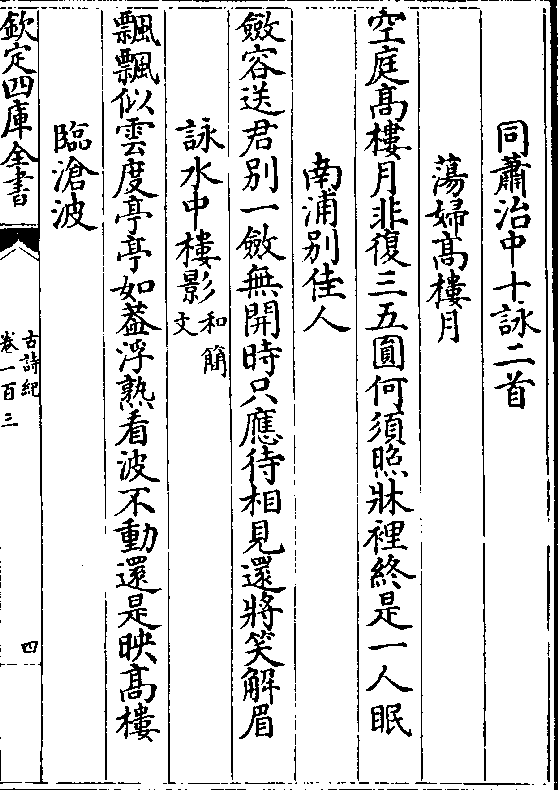 同蕭治中十詠二首
蕩婦髙樓月
空庭髙樓月非復三五圓何須照牀裡終是一人眠
南浦别佳人
斂容送君别一斂無開時只應待相見還將笑解眉
詠水中樓影和簡文
飄飄似雲度亭亭如葢浮熟看波不動還是映髙樓
臨滄波
欽定四庫全書
古詩紀
卷一百三
四